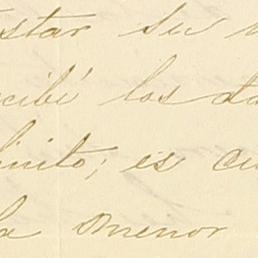 star su
cibé los
inito; es
la menor